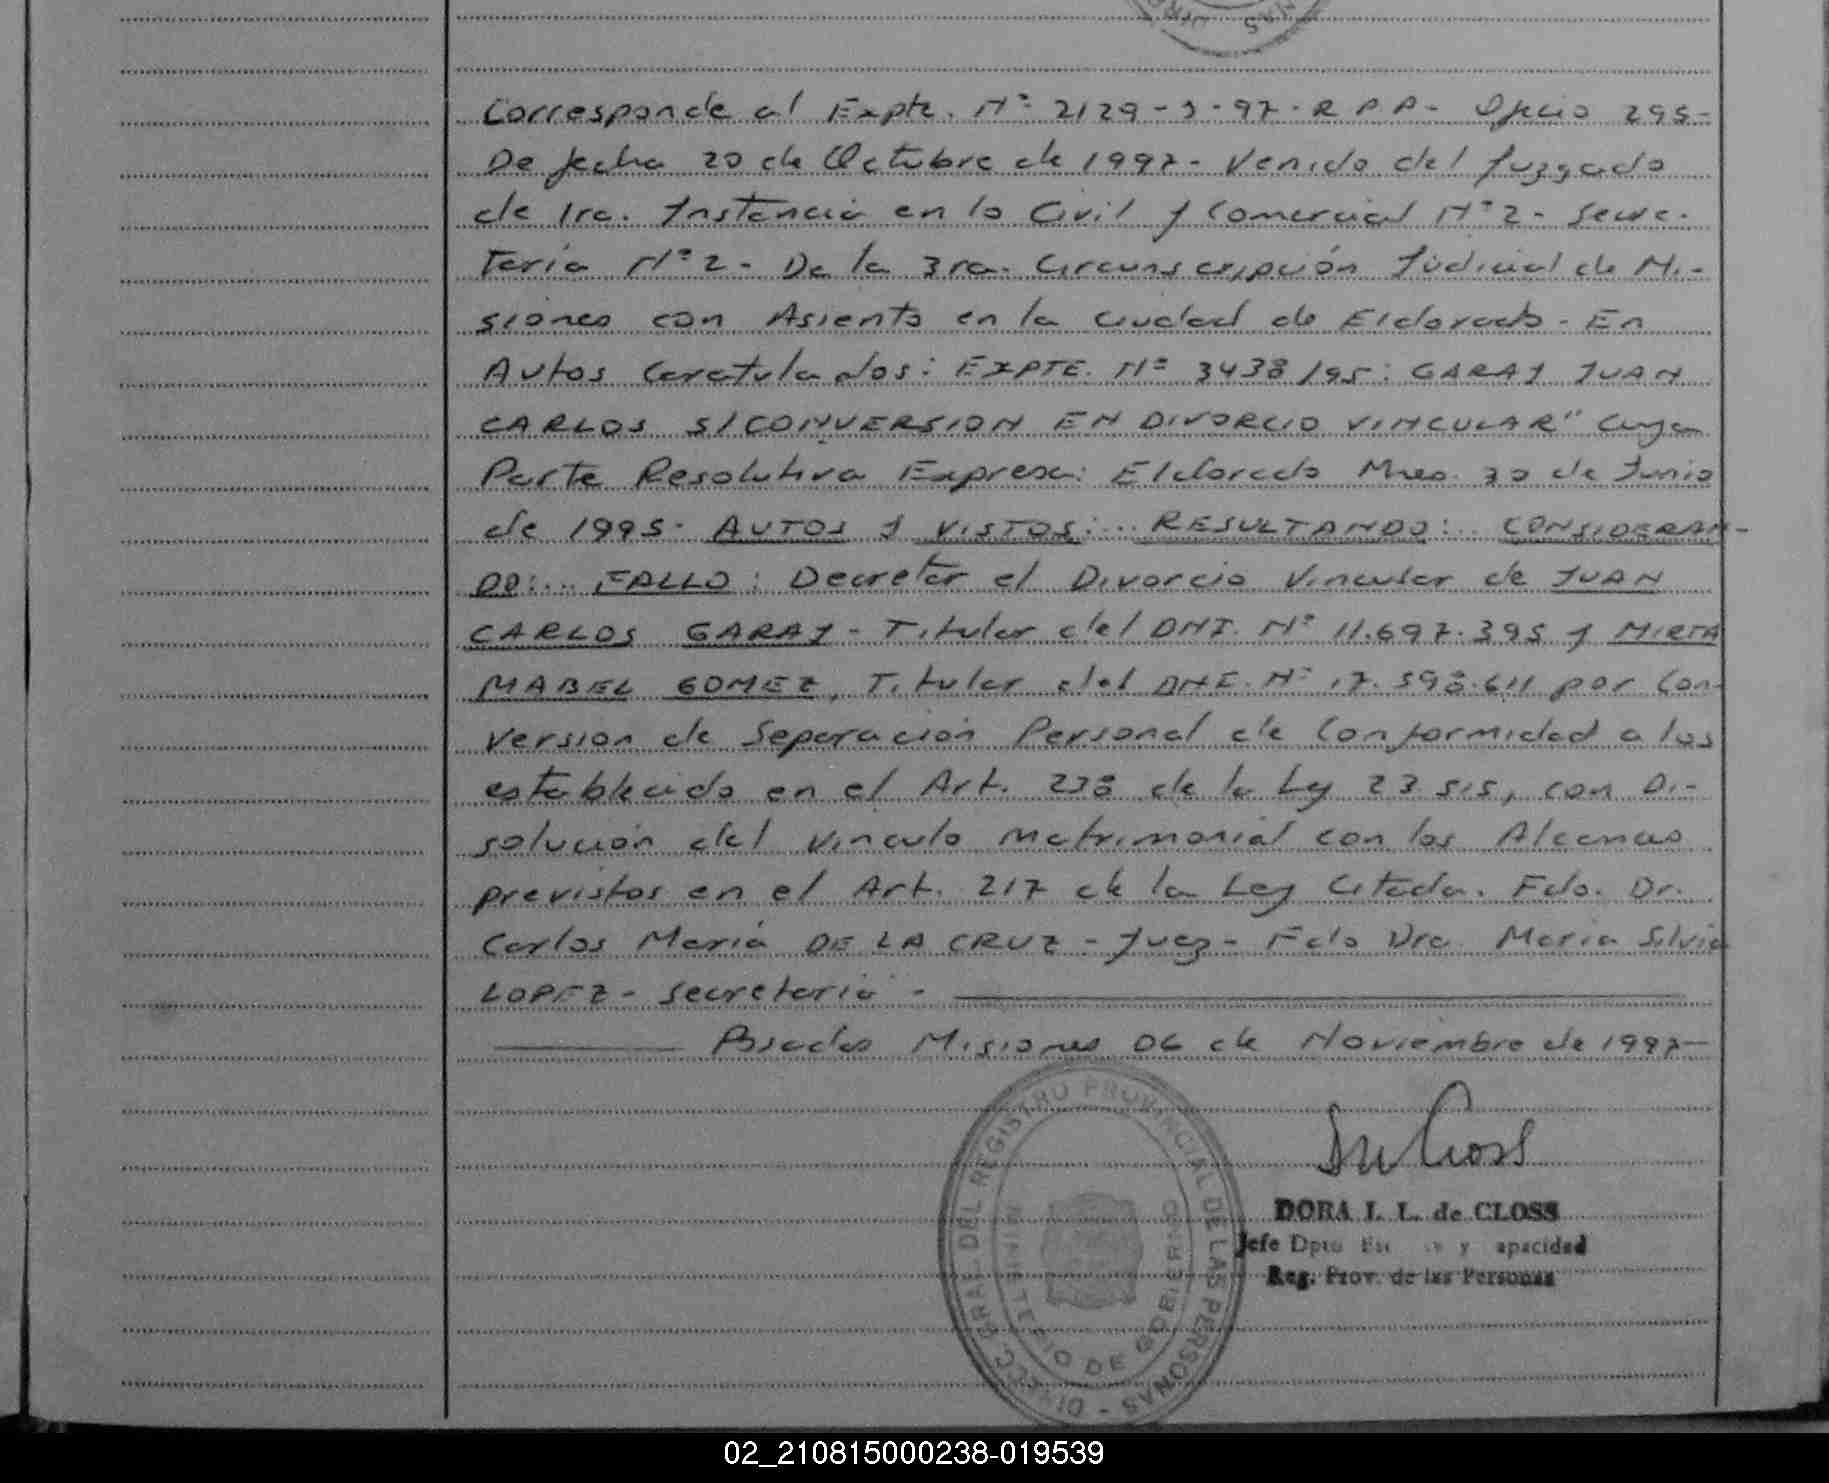 Corresponde al Expte. Nº 2129-J-97-R.P.P- Oficio 295-
De fecha 20 de Octubre de 1997- Venido del Juzgado
de 1ra. Instancia en lo Civil y Comercial Nº 2- Secre-
taría Nº 2- De la 3ra. Circunscripción Judicial de Mi-
siones con Asiento en la ciudad de Eldorado- En
Autos Caratulados: EXPTE. Nº 3438/95: GARAY JUAN
CARLOS S/CONVERSION EN DIVORCIO VINCULAR" Cuya
Parte Resolutiva Expresa: Eldorado Mnes. 30 de Junio
de 1995- AUTOS Y VISTOS:... RESULTANDO:.. CONSIDERAN-
DO:... FALLO: Decretar el Divorcio Vincular de JUAN
CARLOS GARAY- Titular del DNI. Nº 11.697.395 y MIRTA
MABEL GOMEZ, Titular del DNI. Nº 17.598.611 por Con-
version de Separación Personal de Conformidad a los
establecido en el Art. 238 de la Ley 23.515, con Di-
solución del vinculo matrimonial con los Alcances
previstos en el Art. 217 de la Ley Citada. Fdo. Dr.
Carlos María DE LA CRUZ - Juez- Fdo Dra. María Silvia
LOPEZ- Secretaria -
Posadas Misiones 06 de Noviembre de 1997-
DIREC. GRAL. DEL REGISTRO PROVINCIAL DE LAS PERSONAS -
MINISTERIO DE GOBIERNO
DORA I. L. de CLOSS
Jefe Dpto y apacidad
Reg. Prov. de las Personas
02_210815000238-019539